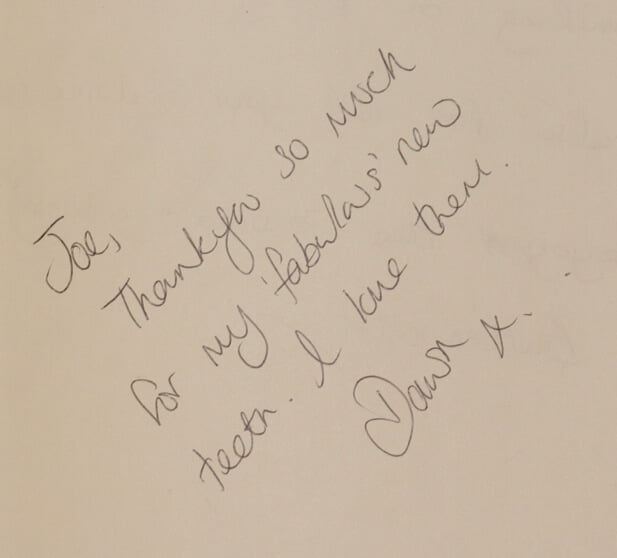 Joe,
Thankyou so much
for my 'fabulous' new
teeth. I love them.
Dawn x.